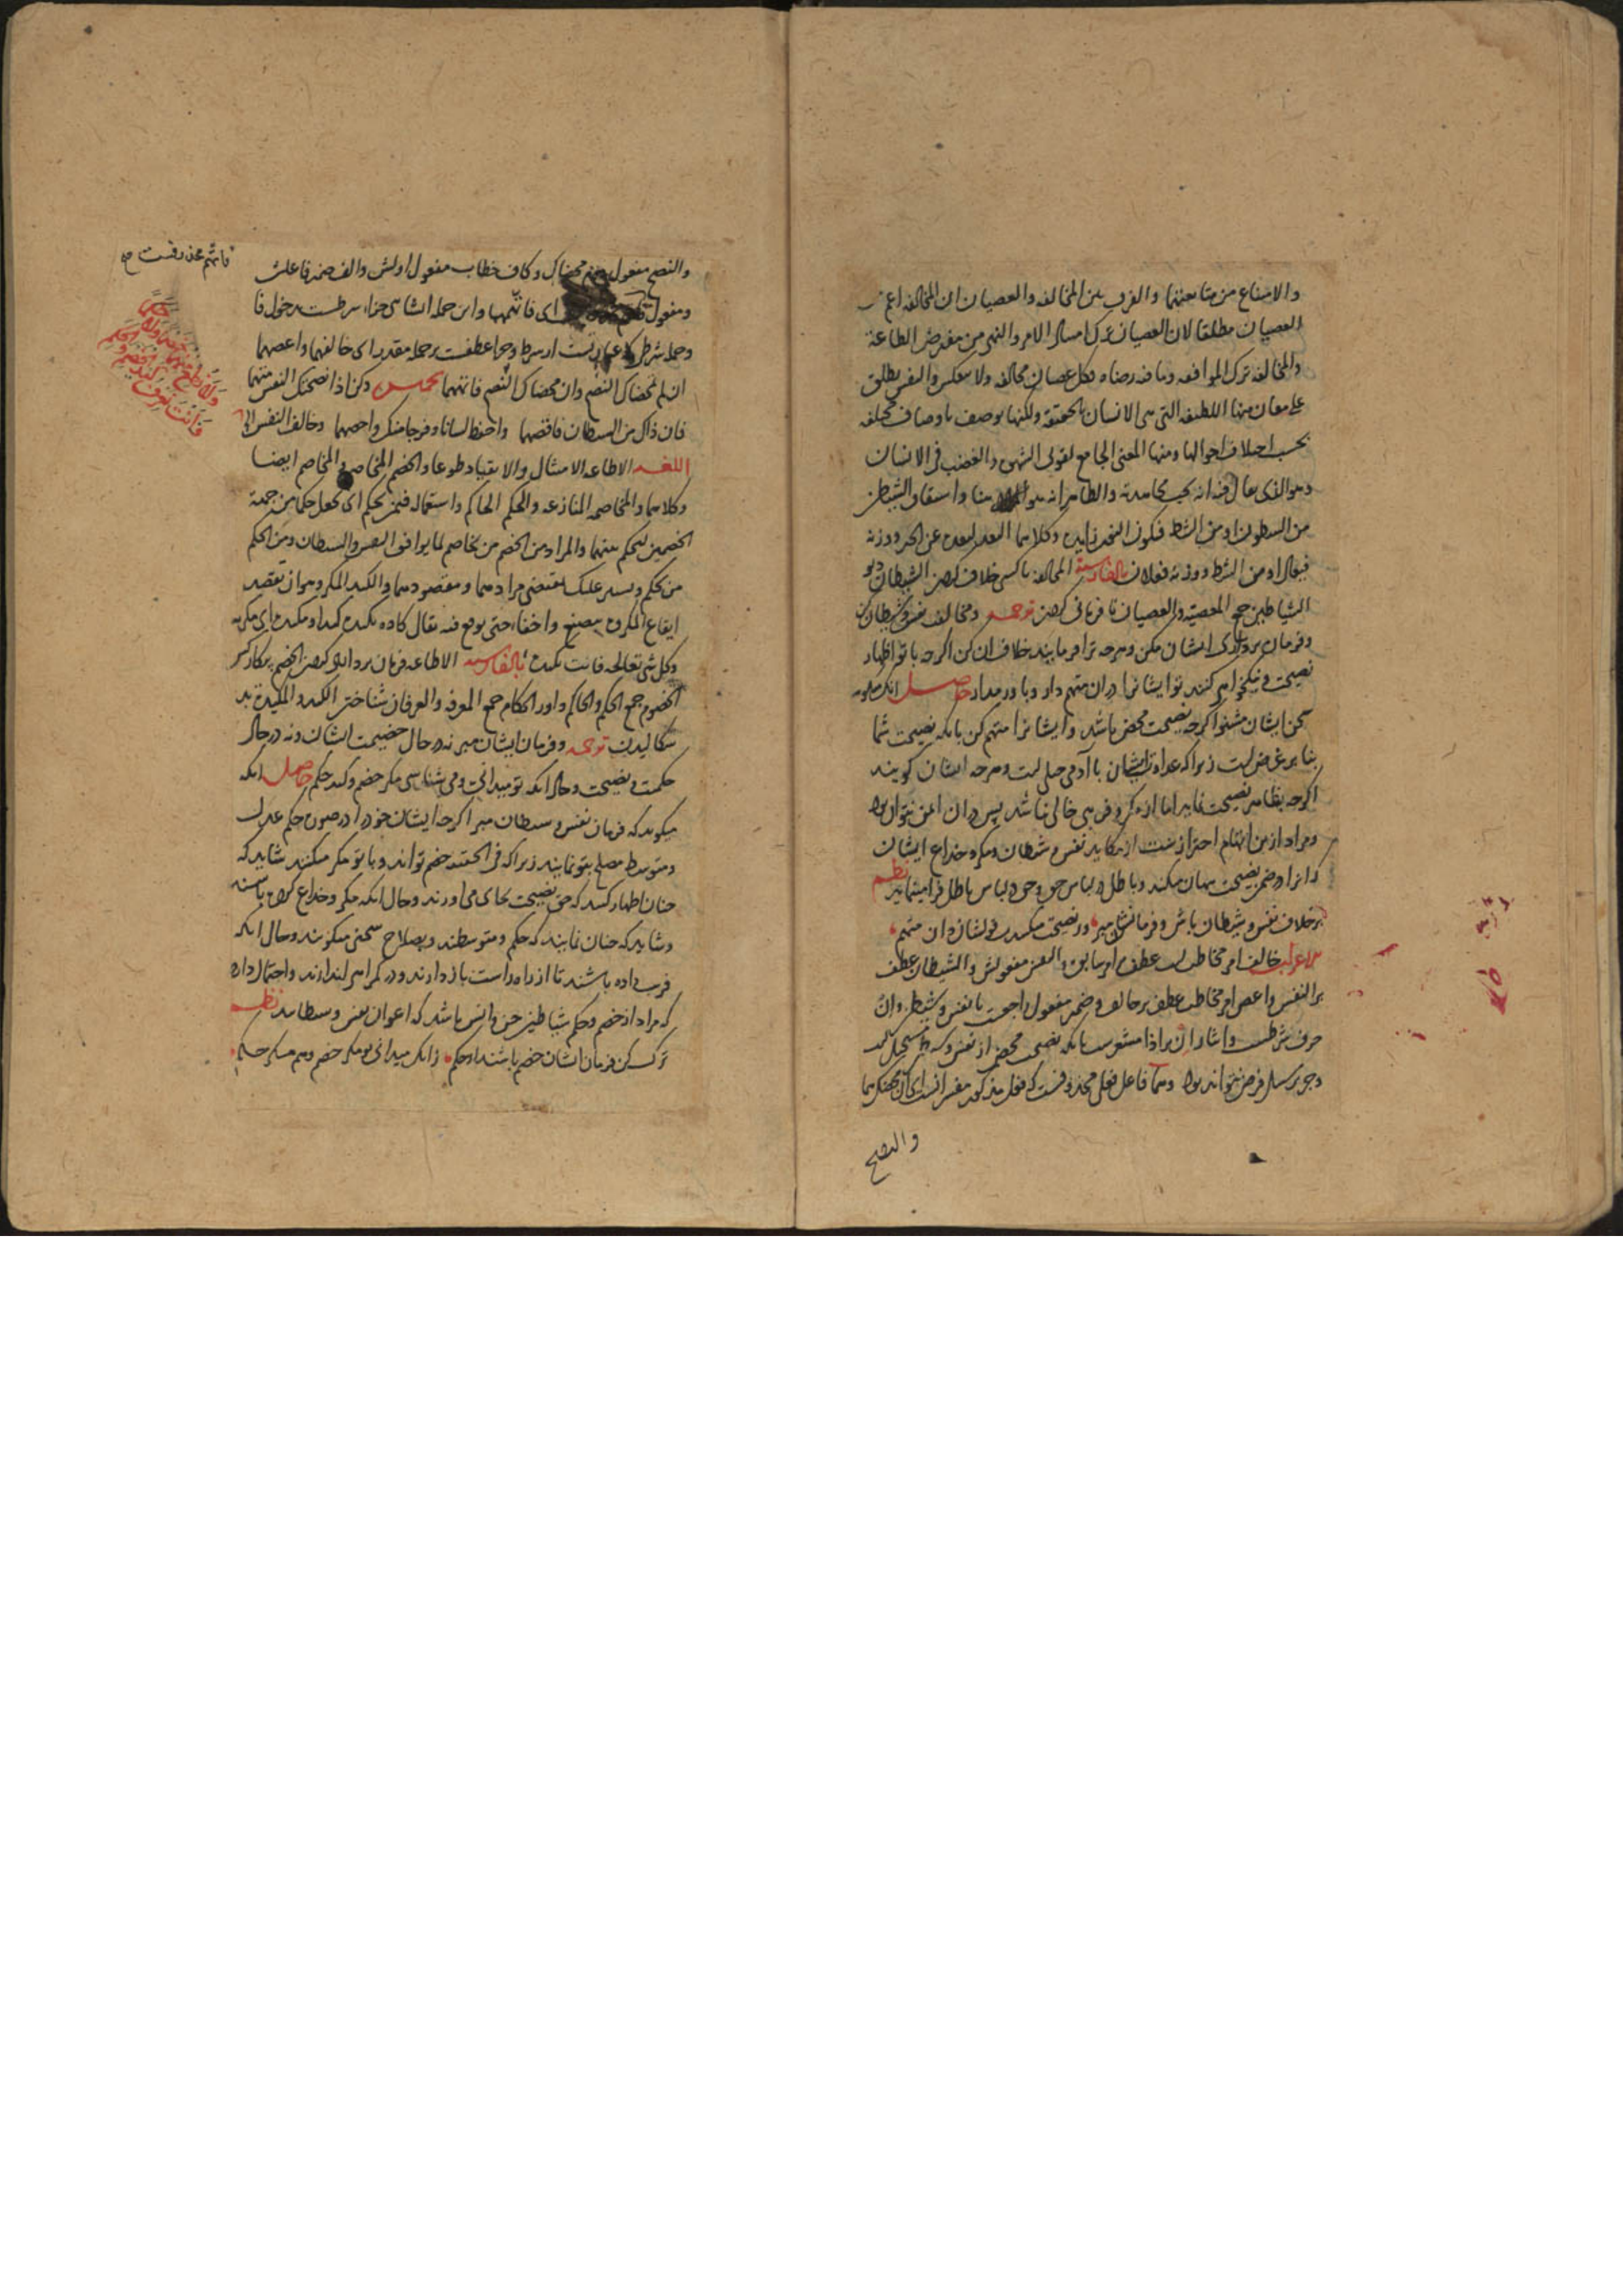 والامتناع من متابعتهما والفرق بين المخالفه والعصيان ان المخالفه اعم من
العصيان مطلقا لان العصيان ترك امتثال الامر والنهى من مفترض الطاعة
والمخالفه ترك الموافقه وما فيه رضاه فكل عصيان مخالفه ولا عكس والنفس يطلق
على معان منها اللطيفه التى هى الانسان بالحقيقة ولكنها يوصف باوصاف مختلفه
بحسب اختلاف احوالها ومنها المعنى الجامع لقوتى الشهوة والغضب فى الانسان
وهو الذى يقال فيه انه يجب مجاهدته والظاهر انه هو المراد هنا واشتقاق الشيطان
من الشطون او من الشط فيكون النون زايدة وكلاهما البعد لبعده عن الخير ووزنه
فيعال او من الشط ووزنه فعلان بالفارسية المخالفه باكسى خلاف كردن الشيطان ديو
الشياطين جمع المعصيه والعصيان نافرمانى كردن ترجمه ومخالف نفس وشيطان كن
وفرمان بردارى ايشان مكن وهرچه ترا فرمايند خلاف ان كن اگرچه با تو اظهار
نصيحت ونيكخواهى كنند تو ايشانرا دران متهم دار وباور مدار حاصل انكه
سخن ايشان مشنو اگرچه نصيحت محض باشد وايشانرا متهم كن بانكه نصيحت شما
بنا بر غرض است زيرا كه عداوت ايشان با آدمى جبلى است وهرچه ايشان گويند
اگرچه بظاهر نصيحت نمايد اما از مكر وفريبى خالى نباشد پس دران ايمن نتوان بود
ومراد ازين اتهام احتراز است از مكايد نفس وشيطان ومكر وخداع ايشان
وانرا در ضمن نصيحت پنهان ميكنند وباطل در لباس حق وحق در لباس باطل فرا مينمايند نظم
برخلاف نفس وشيطان باش وفرمانش مبر ور نصيحت ميكندت ايشان دان متهم
الاعراب خالف امر مخاطب است عطف بر امر سابق والنفس مفعولش والشيطان عطف
بر النفس واعص امر مخاطب عطف بر خالف وضمير مفعول راجعست بانفس وشيطان وان
حرف شرطست وايثار ان بر اذا مشعرست بانكه نصيحت محض از نفس وشيطان مستحيل است
وجز بر سبيل فرض نتواند بود وهما فاعل فعلى محذوفست كه فعل مذكور مفسر انست اى ان محضاك هما
والنصح
والنصح مفعول دوم محضاك وكاف خطاب مفعول اولش والف ضمير فاعلش
ومفعول اى فاتهمهما واين جمله انشائى جزاء شرطست بدخول فا
وجمله شرطيه عبارتست از شرط وجزا عطفست بر جمله مقدر اى خالفهما واعصهما
ان لم يمحضاك النصح وان محضاك النصح فاتهمهما تخميس وكن اذا نصحتك النفس متهما
فان ذاك من الشيطان فاقصهما واحفظ لسانا وفرجا منك واحصهما وخالف النفس الى
اللغه الاطاعه الامتثال والانقياد طوعا والخصم المخاصم والتخاصم ايضا
وكلاهما والمخاصمه المنازعه والحكم الحاكم واستعماله فيمن يحكم اى يجعل حكما من جهة
الخصمين ليحكم بينهما والمراد من الخصم من يخاصم لما يوافق النفس والشيطان ومن الحكم
من يحكم ويشير عليك بمقتضى مرادهما ومقصودهما والكيد المكر وهو ان يقصد
ايقاع المكروه واخفاء حتى يوقع فيه يقال كاده يكيده كيدا ومكيدة اى مكر به
وكل شى تعالجه فانت تكيده بالفارسيه الاطاعه فرمان بردارى كردن الخصم پيكار كر
الخصوم جمع الحكم والحاكم داور الحكام جمع المعرفه والعرفان شناختن الكيد والمكيدة بد
سگاليدن ترجمه وفرمان ايشان مبر نه در حال خصيمت ايشان ونه در حال
حكمت ونصيحت وحال انكه تو ميدانى ومى شناسى مكر خصم وكيد حكم حاصل انكه
ميگويد كه فرمان نفس وشيطان مبر اگرچه ايشان خود را در صورت حكم عدل
ومتوسط مصلح بتو نمايند زيرا كه فى الحقيقه خصم تواند وبا تو مكر ميكنند شايد كه
چنان اظهار كنند كه حق نصيحت بجاى مى اورند وحال انكه مكر وخداع كرده باشند
وشايد كه چنان نمايند كه حكم ومتوسطند وبصلاح سخنى ميگويند وحال انكه
فريب داده باشند تا از راه راست باز دارند ودر گمراهى اندازند واحتمال دارد
كه مراد از خصم وحكم شياطين جن وانس باشد كه اعوان نفس وشيطانند نظم
ترك كن فرمان ايشان خصم باشند او حكم زانكه ميدانى تو مكر خصم وهم مكر حكم
فاتهم محذوفست صح
وَلَا تُطِعْ مِنْهُمَا خَصْمًا وَلَا حَكَمًا
فَاَنْتَ تَعْرِفُ كَيْدَ الْخَصْمِ وَالْحَكَمِ